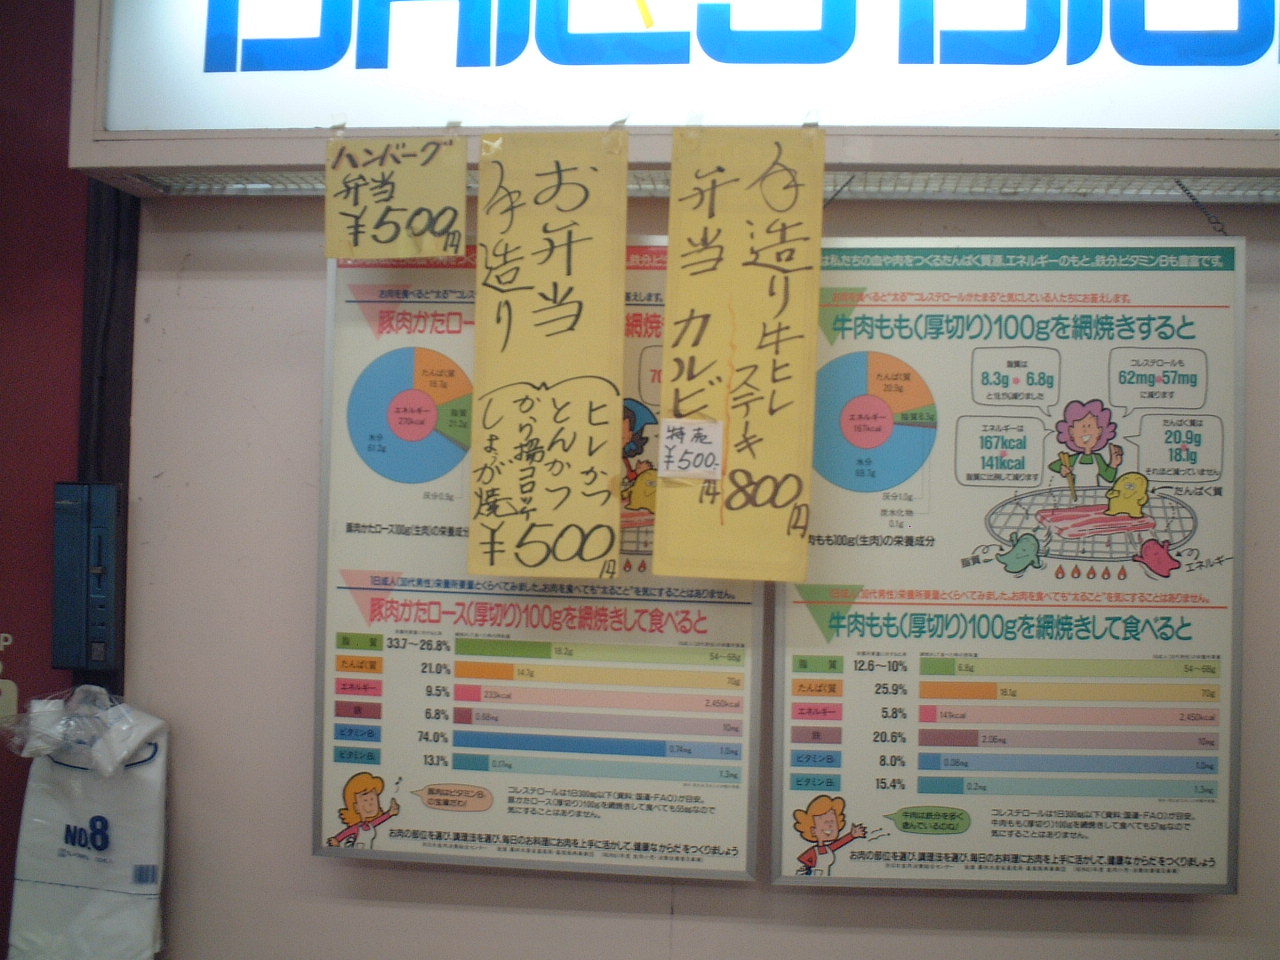 ハンバーグ
弁当
¥500円
お弁当
手造り
ヒレかつ
とんかつ
から揚コロッケ
しょうが焼
¥500円
手造り牛ヒレ
ステーキ
800円
弁当 カルビ
特売
¥500-
円
は私たちの血や肉をつくるたんぱく質源、エネルギーのもと。鉄分、ビタミンBも豊富です。
お肉を食べると"太る""コレス
答えします。
豚肉かたロー
網焼
たんぱく質
エネルギー
水分
灰分0.9g
豚肉かたロース100g(生肉)の栄養成分
お肉を食べると"太る""コレステロールがたまる"と気にしている人たちにお答えします。
牛肉もも(厚切り)100gを網焼きすると
たんぱく質
20.9g
エネルギー
167kcal
水分
灰分1.0g
炭水化物
0.1g
肉もも100g(生肉)の栄養成分
脂質は
8.3g 6.8g
コレステロールも
62mg 57mg
に減ります
エネルギーは
167kcal
141kcal
脂質に比例して減ります
たんぱく質は
20.9g
18.1g
それほど減っていません
たんぱく質
脂質
エネルギー
1日成人(30代男性)栄養所要量とくらべてみました。お肉を食べても"太ること"を気にすることはありません。
豚肉かたロース(厚切り)100gを網焼きして食べると
脂質 33.7~26.8% 18.2g 54~68g
たんぱく質 21.0% 14.7g 70g
エネルギー 9.5% 233kcal 2,450kcal
鉄 6.8% 0.68mg 10mg
ビタミンB₁ 74.0% 0.74mg 1.0mg
ビタミンB₂ 13.1% 0.17mg 1.3mg
豚肉はビタミンB₁
の宝庫だわ!
コレステロールは1日300mg以下(資料:国連・FAO)が目安。
豚かたロース(厚切り)100gを網焼きして食べても55mgなので
気にすることはありません。
お肉の部位を選び、調理法を選び、毎日のお料理にお肉を上手に活かして、健康なからだをつくりましょう
1日成人(30代男性)栄養所要量とくらべてみました。お肉を食べても"太ること"を気にすることはありません。
牛肉もも(厚切り)100gを網焼きして食べると
脂質 12.6~10% 6.8g 54~68g
たんぱく質 25.9% 18.1g 70g
エネルギー 5.8% 141kcal 2,450kcal
鉄 20.6% 2.06mg 10mg
ビタミンB₁ 8.0% 0.08mg 1.0mg
ビタミンB₂ 15.4% 0.2mg 1.3mg
牛肉は鉄分を多く
含んでいるのね!
コレステロールは1日300mg以下(資料:国連・FAO)が目安。
牛肉もも(厚切り)100gを網焼きして食べても57mgなので
気にすることはありません。
お肉の部位を選び、調理法を選び、毎日のお料理にお肉を上手に活かして、健康なからだをつくりましょう
NO.8